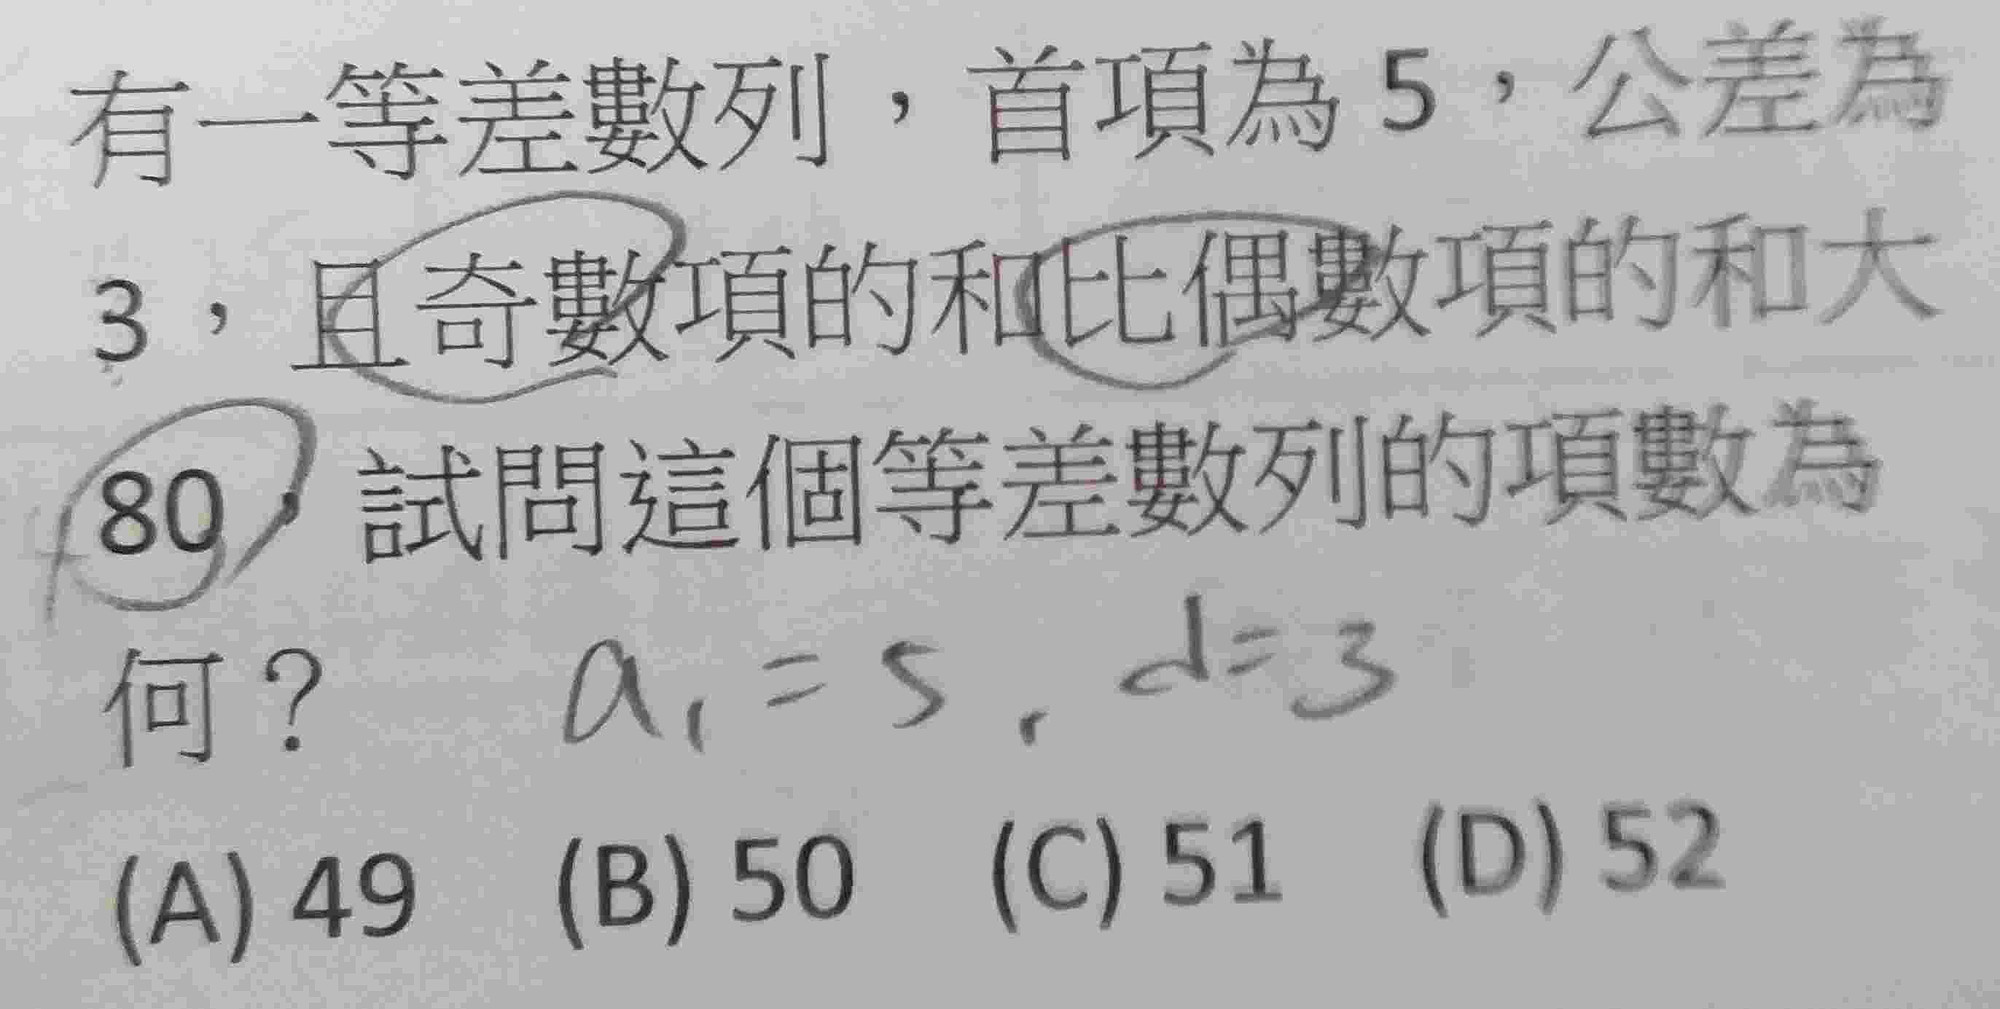 有一等差數列，首項為 5，公差為
3，且奇數項的和比偶數項的和大
80，試問這個等差數列的項數為
何？ a₁ = 5 , d = 3
(A) 49 (B) 50 (C) 51 (D) 52